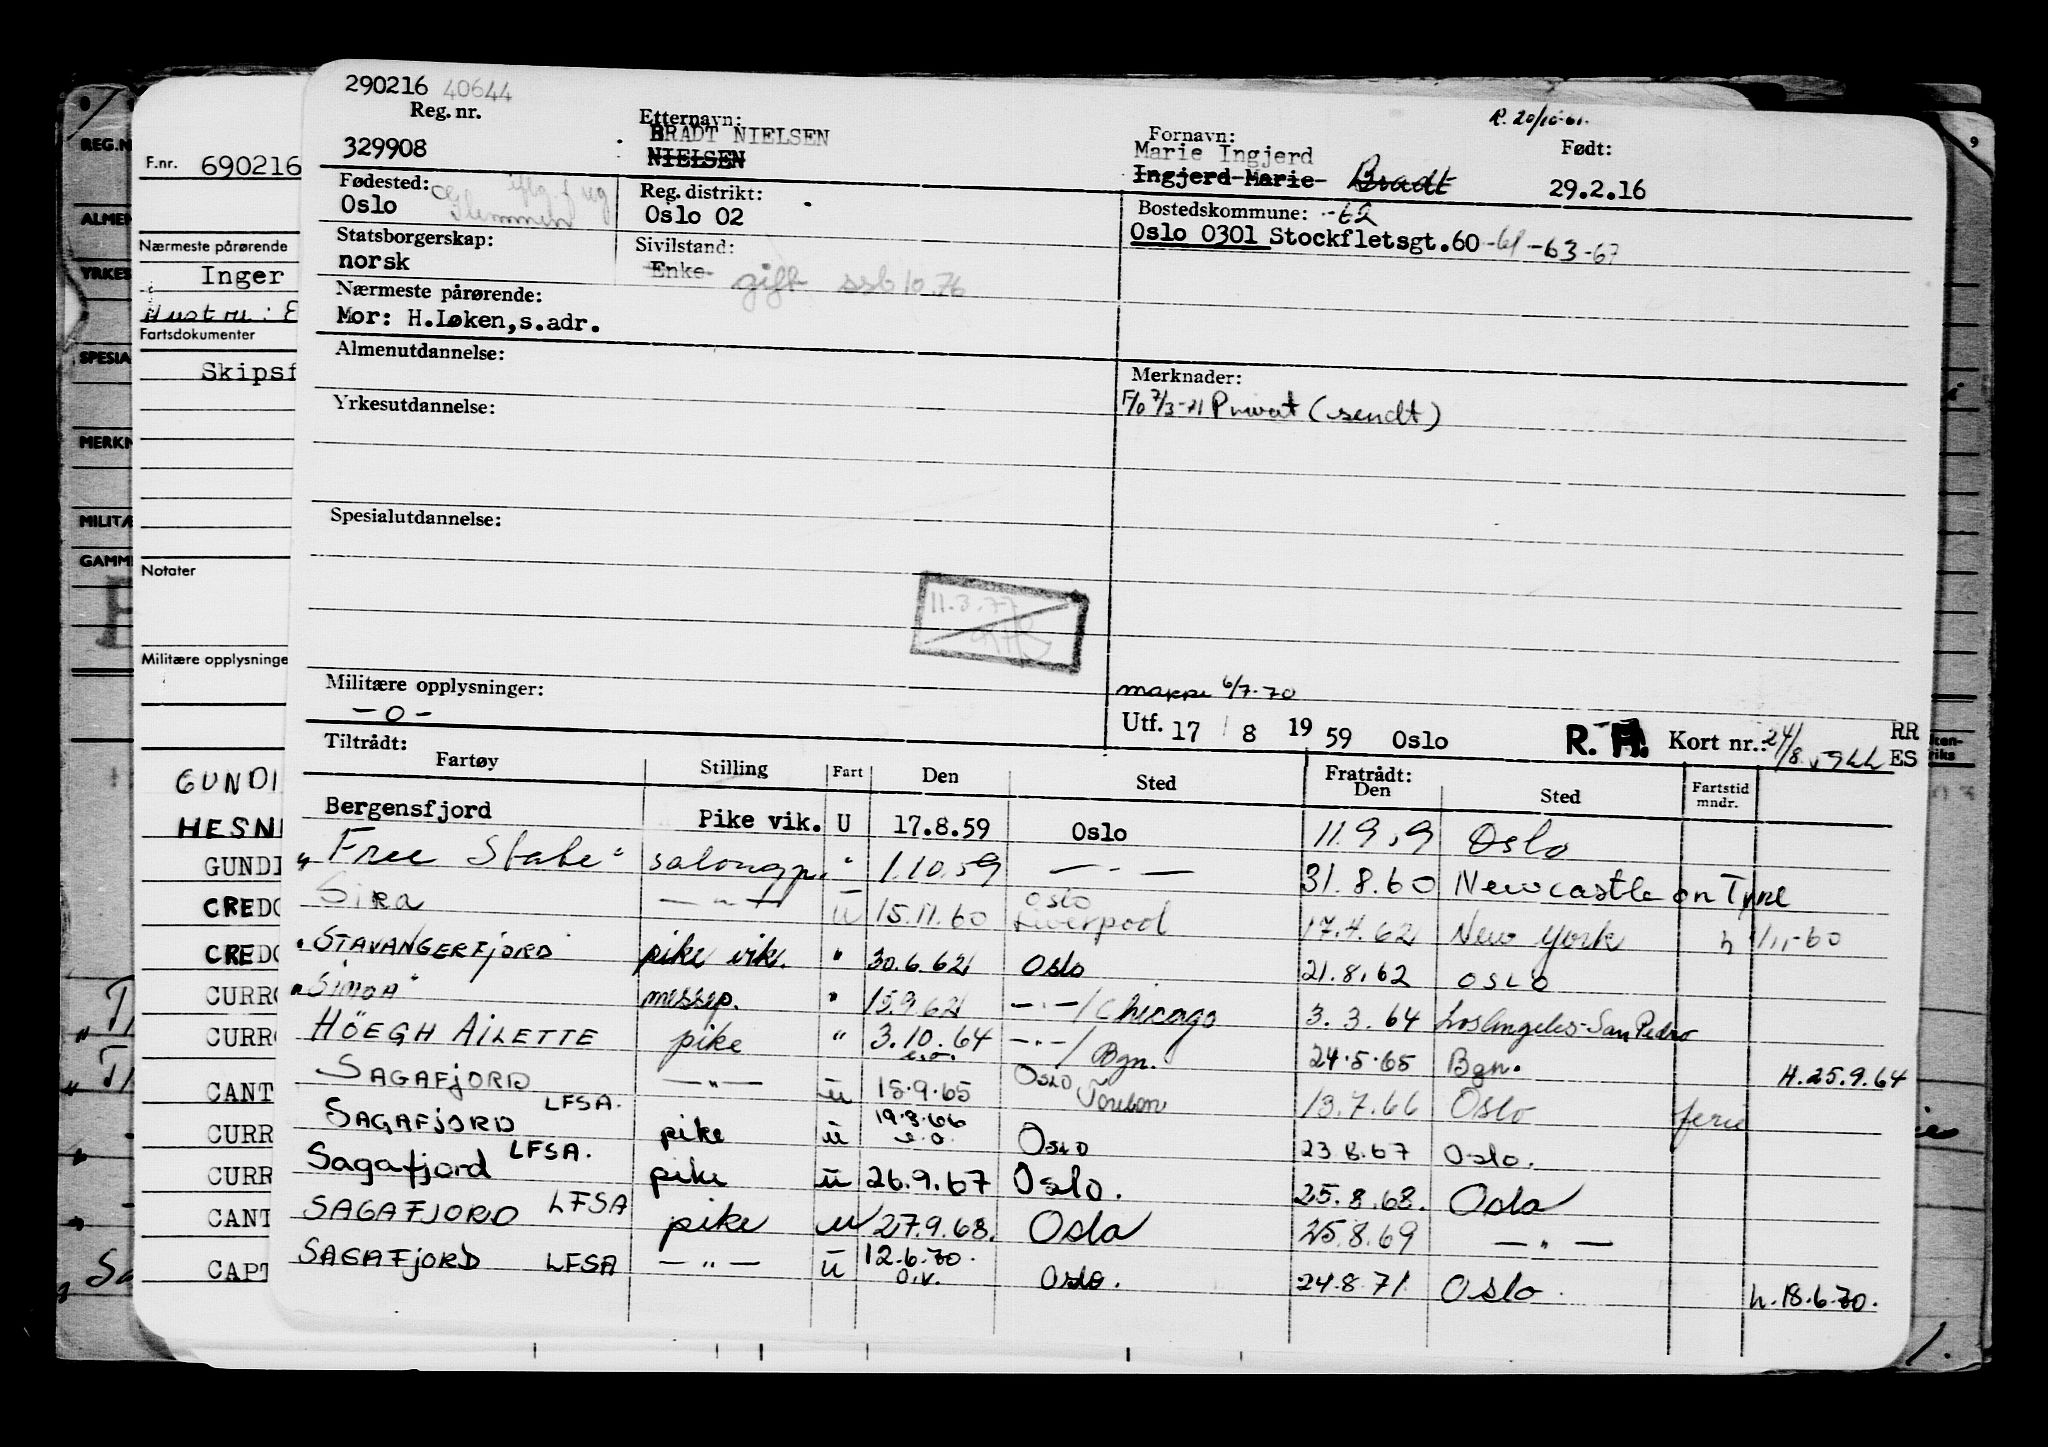 290216 40644
Reg. nr.
329908
Etternavn:
BRADT NIELSEN
NIELSEN
R. 20/10-61.
Fornavn:
Marie Ingjerd
Ingjerd Marie Bradt
Født:
29.2.16
Fødested:
Oslo
Glemmen
Reg. distrikt:
Oslo 02
Bostedskommune:
Oslo 0301 Stockfletsgt.60 -61 -63-67
Statsborgerskap:
norsk
Sivilstand:
Enke gift ssb 10.76
Nærmeste pårørende:
Mor: H.Løken,s.adr.
Almenutdannelse:
Merknader:
F/o 2/3-71 Privat (sendt)
Yrkesutdannelse:
Spesialutdannelse:
11.3.77
Militære opplysninger:
-0-
mappe 6/7-70
Utf. 17 / 8 1959 Oslo R. H. Kort nr.: 24/8 RR
ES
Tiltrådt:
Fartøy Stilling Fart Den Sted Fratrådt: Den Sted Fartstid mndr.
Bergensfjord Pike vik. U 17.8.59 Oslo 11 9 59 Oslo
"Free State" salongp. " 1.10.59 — " — 31.8.60 Newcastle on Tyne
Sira — " — u 15.11.60 Oslo Liverpool 17.4.62 New York h 1/11-60
"STAVANGERFJORD" pike vik. " 30.6.62 Oslo 21.8.62 OSLO
"SIMOA" messp. " 15.9.62 — " — / Chicago 3.3.64 Los Angeles-San Pedro
HÖEGH AILETTE pike " 3.10.64 e.o. — " — / Bgn. 24.5.65 Bgn. H.25.9.64
SAGAFJORD — " — u 18.9.65 Oslo 13.7.66 Oslo ferie
SAGAFJORD LFSA. pike u 19.8.66 e.o. Oslo 23 8.67 Oslo.
Sagafjord LFSA. pike u 26.9.67 Oslo. 25.8.68. Oslo
SAGAFJORD LFSA pike u 27.9.68. Oslo 25.8.69 — " —
SAGAFJORD LFSA — " — u 12.6.70. o.v. Oslo. 24.8.71 Oslo. h.18.6.70.
F.nr. 690216
Nærmeste pårørende
Inger
Hustru: E
Fartsdokumenter
Skipsf
Notater
Militære opplysninge
GUNDI
HESNE
GUNDI
CREDO
CREDO
CURRO
CURRO
CANT
CURR
CURR
CANT
CAPT
REG.N
ALMEN
YRKES
SPESIA
MERKN
MILITÆ
GAMME